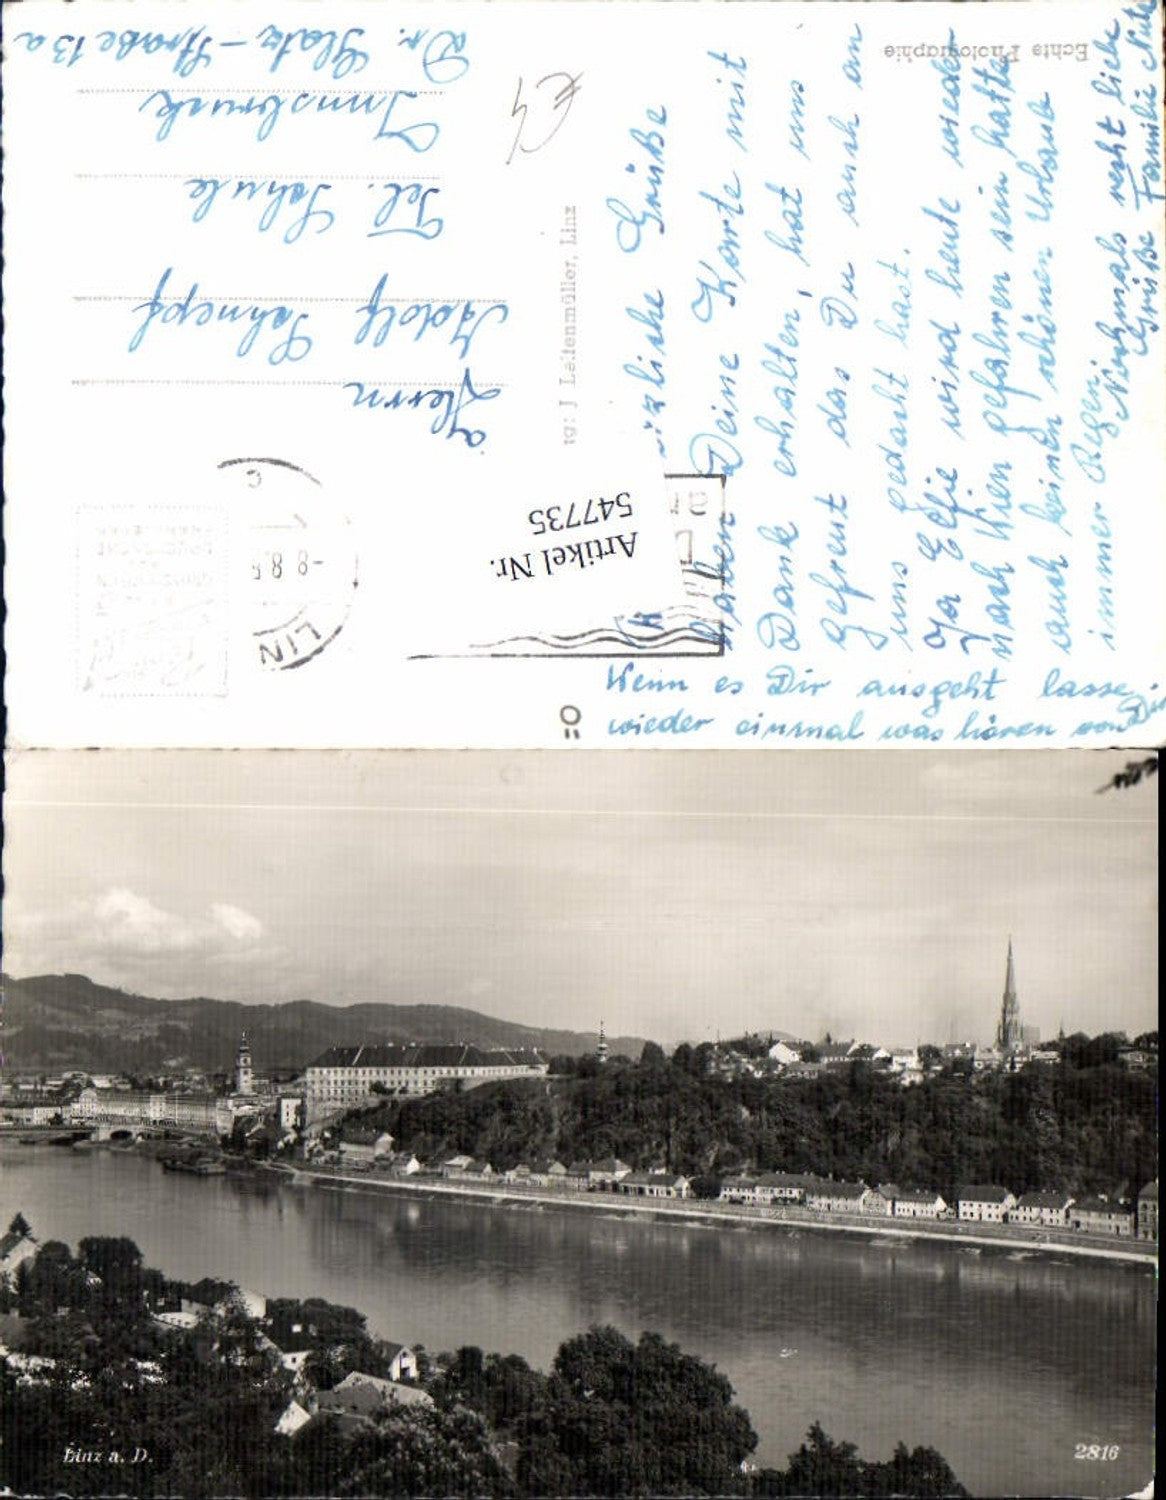 Echte Photographie
Herrn
Adolf Schnepf
Tel. Schule
Innsbruck
Dr. Glatz-Straße 13a
Artikel Nr.
547735
LIN
-8.8.5
J Leitenmüller, Linz
Grüße
haben Deine Karte mit
Dank erhalten, hat uns
gefreut das Du auch an
uns gedacht hast.
Ja Elfie wird heute wieder
nach Wien gefahren sein hatte
auch keinen schönen Urlaub
immer Regen.
Nochmals recht liebe
Grüße Familie
Wenn es Dir ausgeht lasse
wieder einmal was hören von Dir.
Ö
Linz a. D.
2816